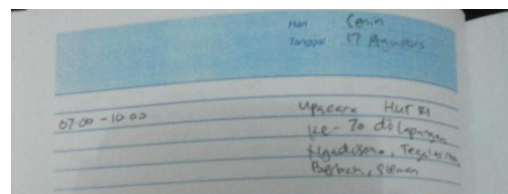 Hari Senin
Tanggal 17 Agustus
07.00 - 10.00 Upacara HUT RI
ke - 70 di Lapangan
Ngadisono, Tegaltirto,
Berbah, Sleman